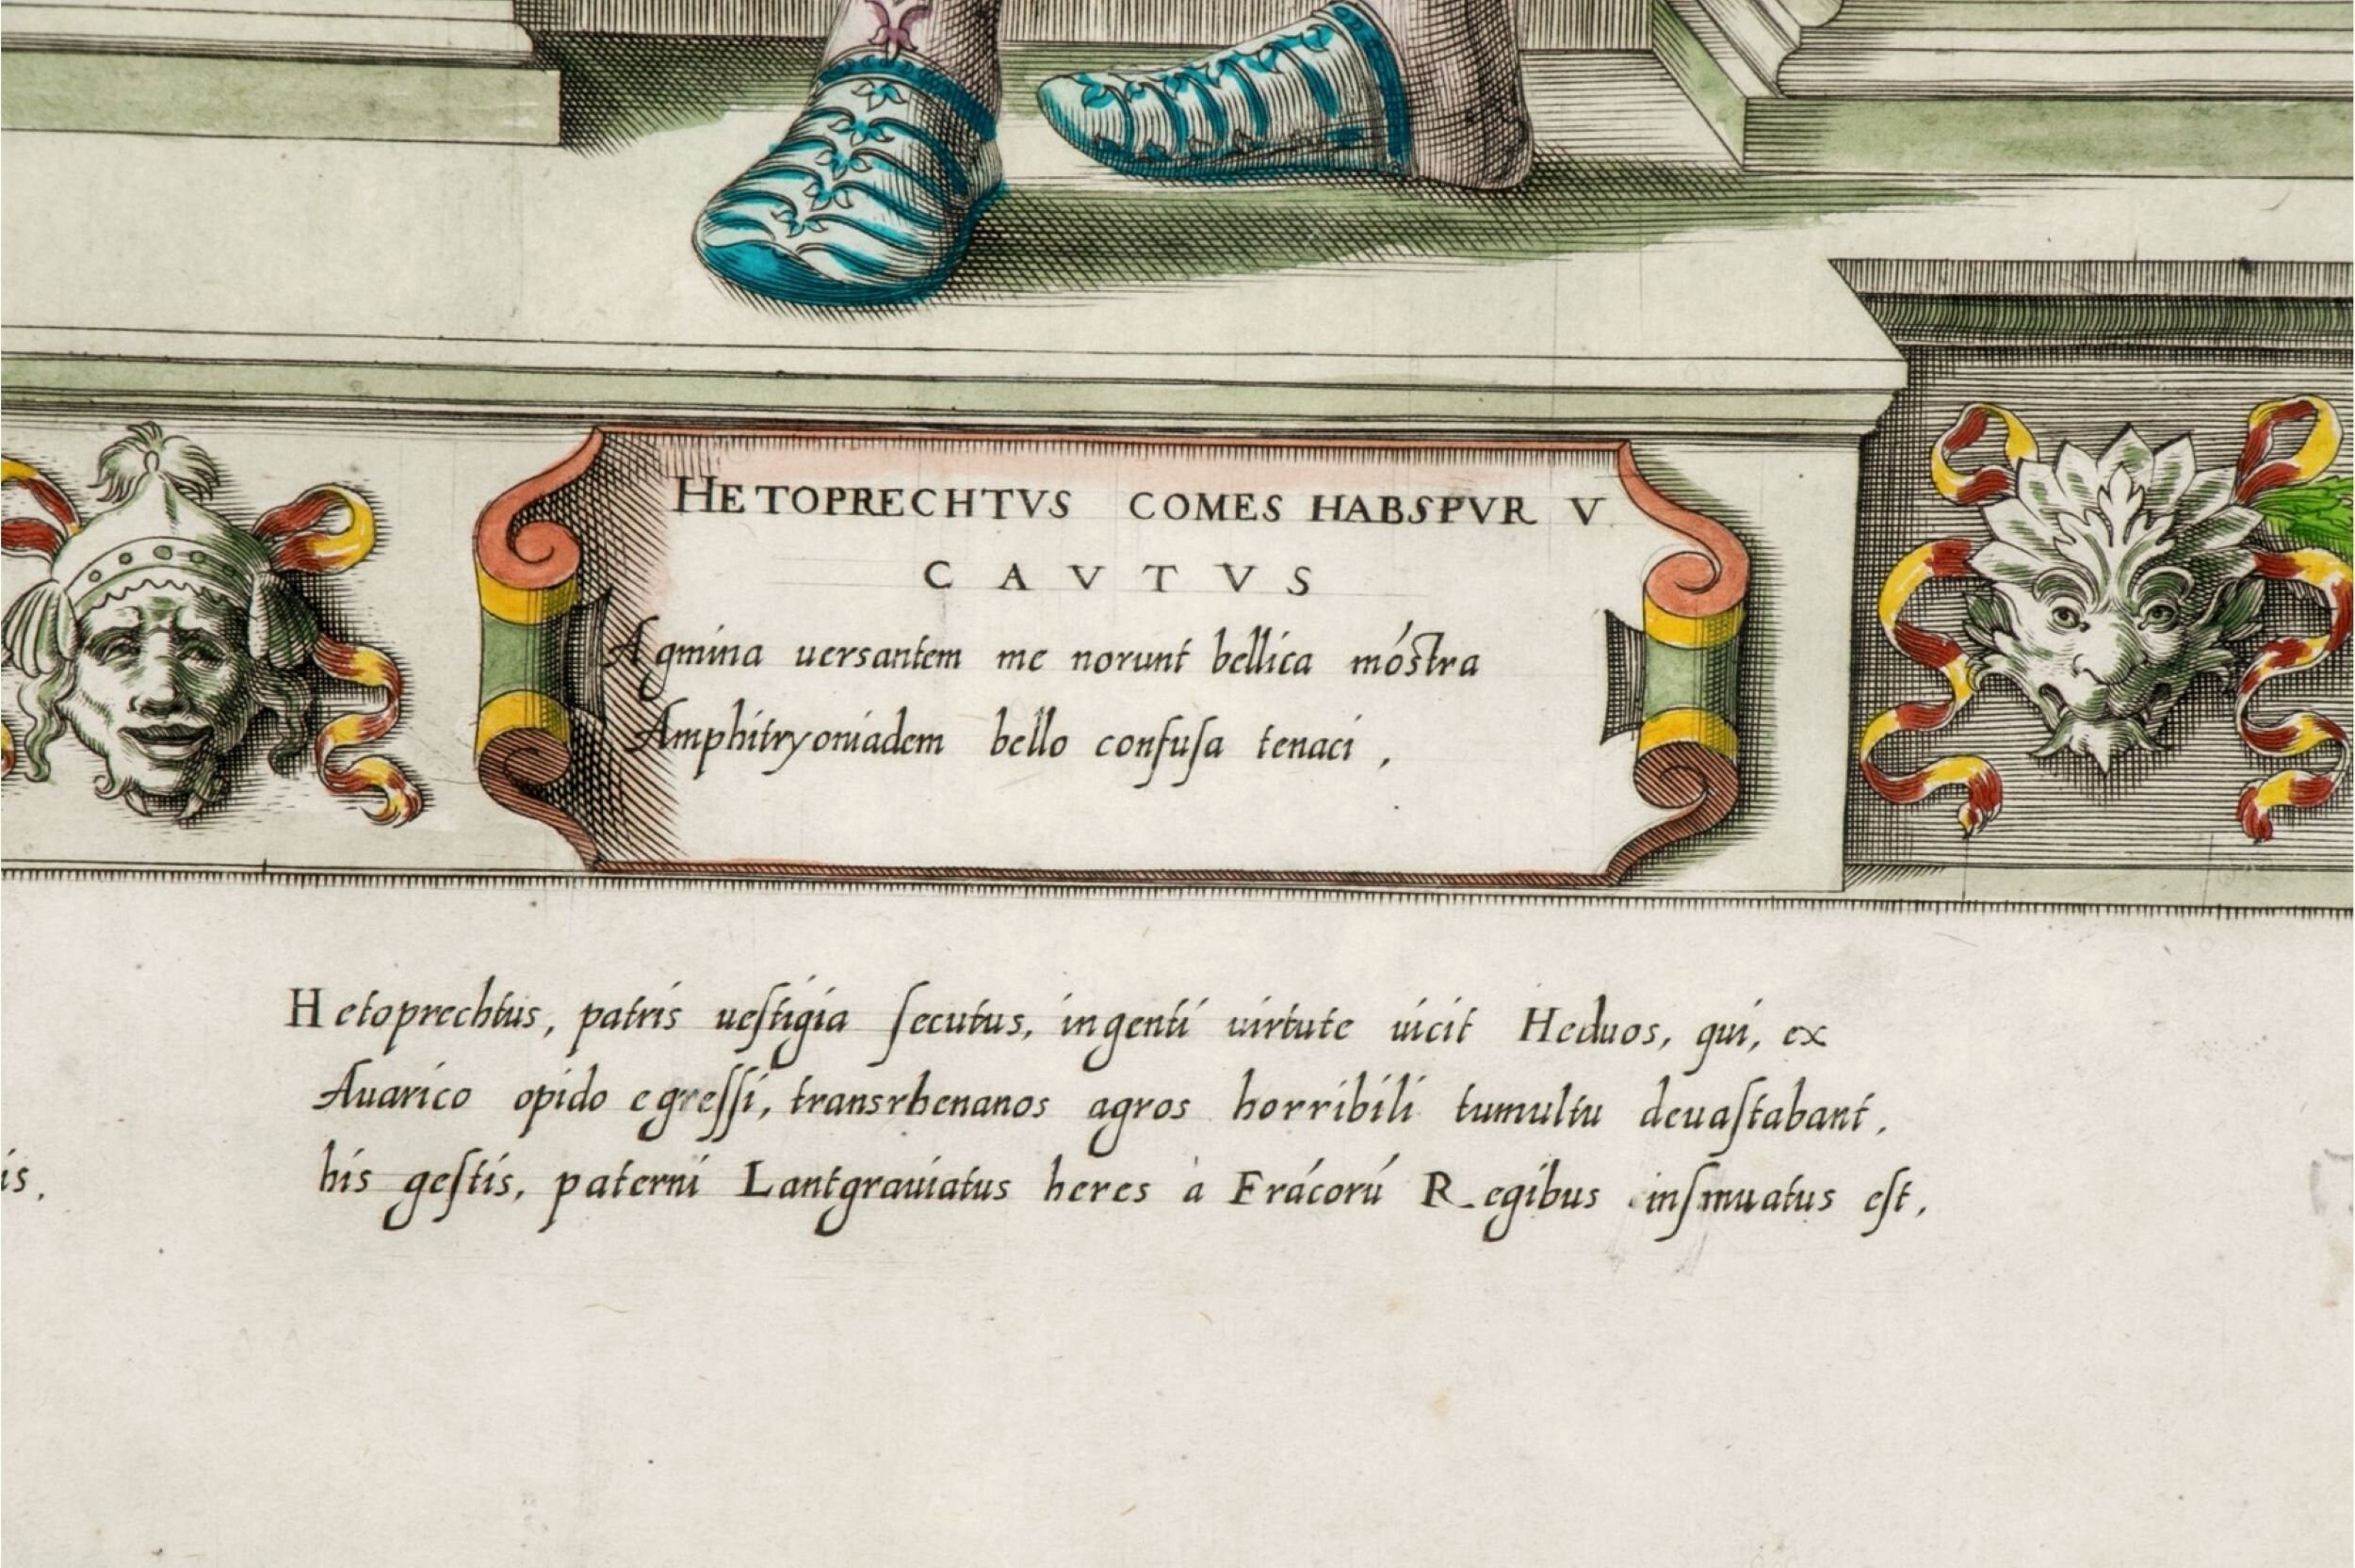 HETOPRECHTVS COMES HABSPVR V
CAVTVS
Agmina uersantem me norunt bellica móstra
Amphitryoniadem bello confuſa tenaci,
Hetoprechtus, patris ueſtigia ſecutus, ingenti uirtute uicit Heduos, qui, ex
Auarico opido egreſſi, transrhenanos agros horribili tumultu deuaſtabant.
his geſtis, paterni Lantgrauiatus heres à Frácorú Regibus inſinuatus eſt.
is.